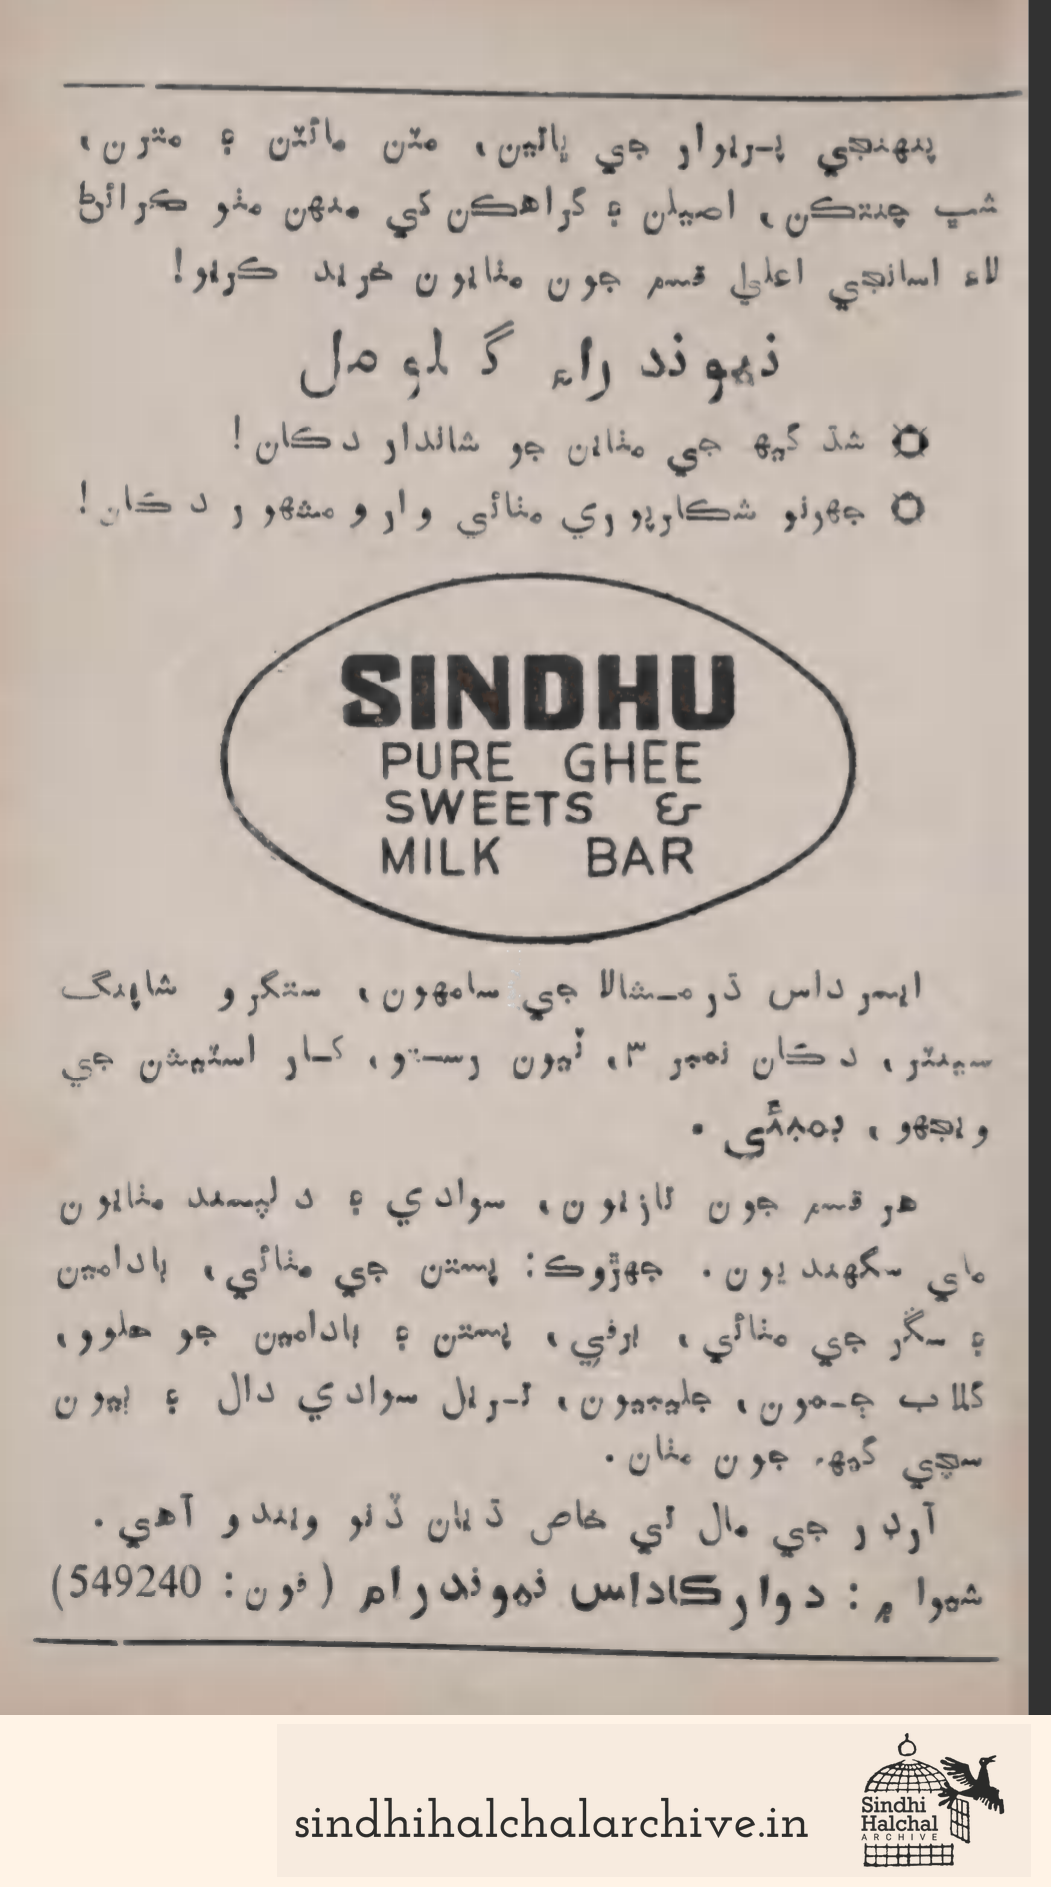 پنهنجي پـريوار جي ڀاتين، مٽن مائٽن ۽ مترن،
شڀ چنتڪن، اصيلن ۽ گراهڪن کي منهن مٺو ڪرائڻ
لاءِ اسانجي اعليٰ قسم جون مٺايون خريد ڪريو!
نهوند راءِ گلومل
شڌ گيهه جي مٺاين جو شاندار دڪان!
جهونو شڪارپوري مٺائي وارو مشهور دڪان!
SINDHU
PURE GHEE
SWEETS &
MILK BAR
ايسر داس ڌرمـشالا جي سامهون، ستگرو شاپنگ
سينٽر، دڪان نمبر ٣، ٽيون رسـتو، کـار اسٽيشن جي
ويجهو، بمبئي.
هر قسم جون تازيون، سوادي ۽ دلپسند مٺايون
ملي سگهنديون. جهڙوڪ: پستن جي مٺائي، بادامين
۽ سڱر جي مٺائي، برفي، پستن ۽ بادامين جو حلوو،
گلاب ڄـمون، جليبيون، تـريل سوادي دال ۽ ٻيون
سچي گيهه جون مٺايون.
آرڊر جي مال تي خاص ڌيان ڏنو ويندو آهي.
شيوا ۾: دوارڪاداس نهوندرام (فون: 549240)
sindhihalchalarchive.in
Sindhi
Halchal
ARCHIVE